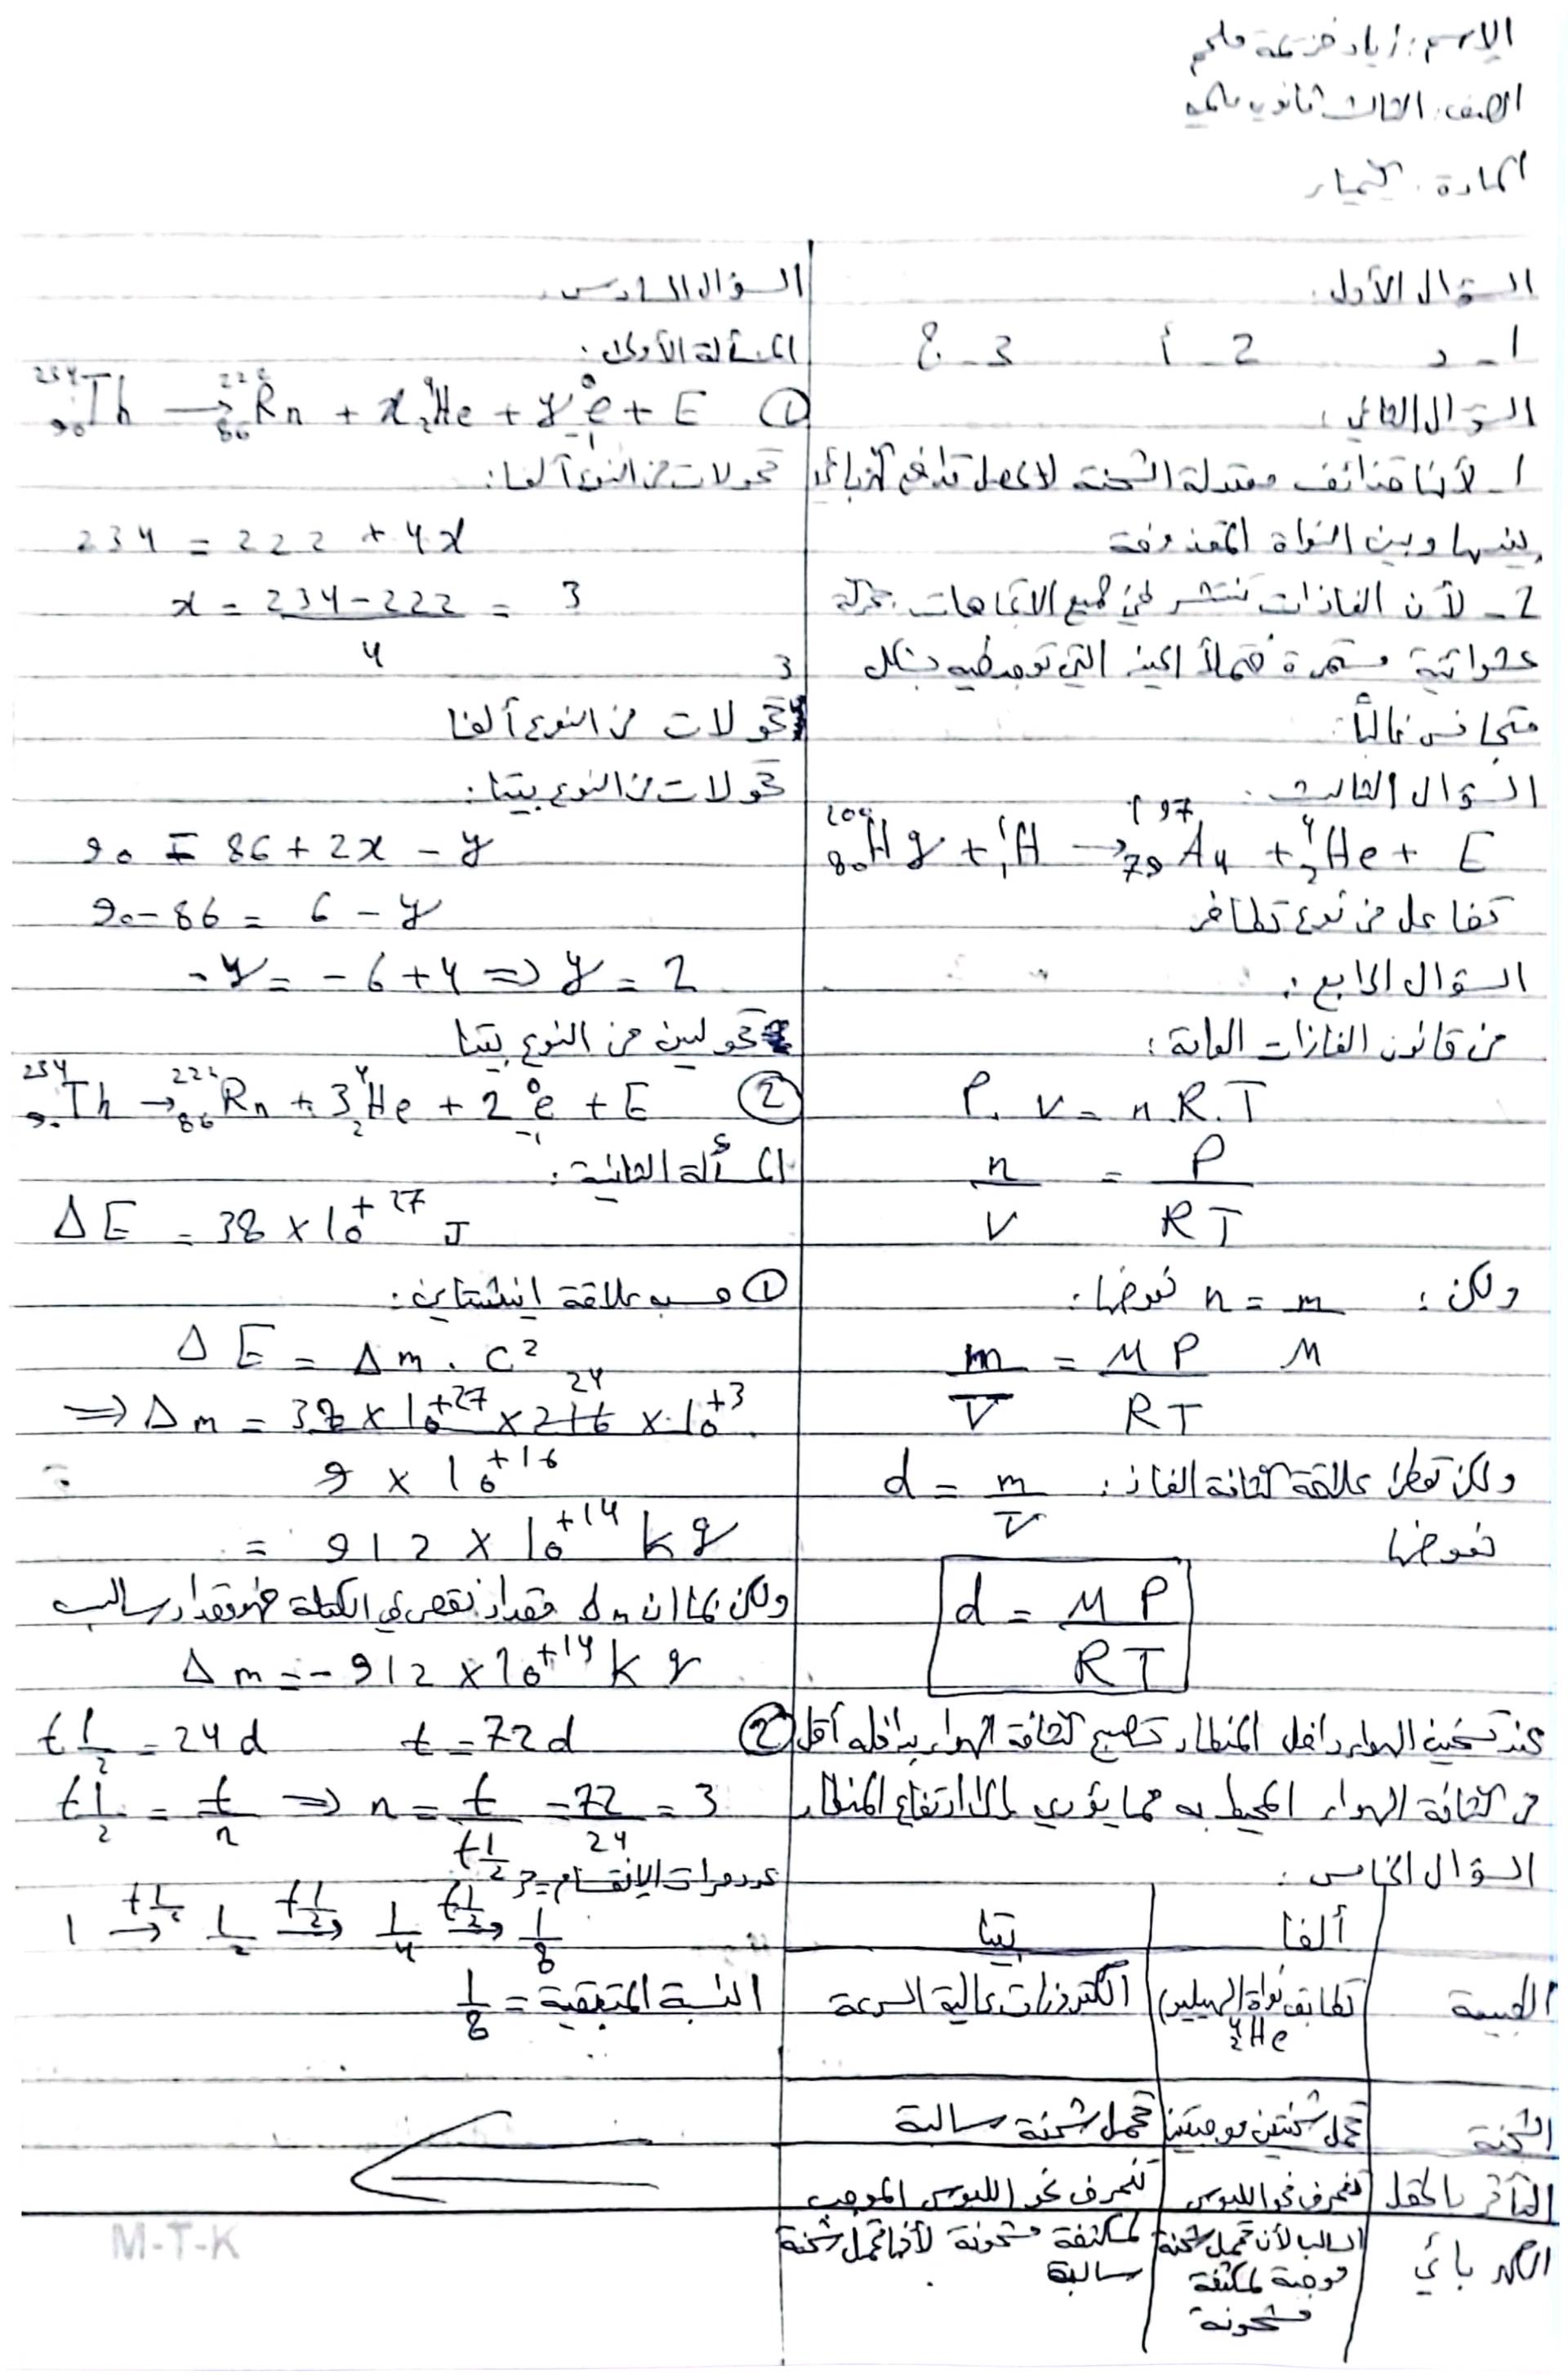 الاسم: زياد خزيمة ملحم
الصف: الثالث ثانوي علمي
المادة: كيمياء
السؤال الأول:
1 - د 2 - أ 3 - ج
السؤال الثاني:
1 - لأنها قذائف معتدلة الشحنة لا يحصل تدافع كهربائي
بينها وبين النواة المقذوفة
2 - لأن الغازات تنتشر في جميع الاتجاهات بحركة
عشوائية مستمرة فتملأ الحيز التي توجد فيه بشكل
متجانس غالباً.
السؤال الثالث:
²⁰⁰₈₀Hg + ¹₁H → ¹⁹⁷₇₉Au + ⁴₂He + E
تفاعل من نوع تطافر
السؤال الرابع:
من قانون الغازات العامة:
P. V = n.R.T
n/V = P/RT
ولكن: n = m/M نعوضها:
m/V = MP/RT
ولكن تعطى علاقة كثافة الغاز: d = m/V
نعوضها
d = MP/RT
عند تسخين الهواء داخل المنطاد تصبح كثافة الهواء بداخله أقل
من كثافة الهواء المحيط به مما يؤدي إلى ارتفاع المنطاد
السؤال الخامس:
ألفا بيتا
الطبيعة تطابق نواة الهيليوم ⁴₂He الكترونات عالية السرعة
الشحنة تحمل شحنتين موجبتين تحمل شحنة سالبة
التأثر بالحقل الكهربائي تنحرف نحو اللبوس السالب لأن تحمل شحنة موجبة لمكثفة مشحونة تنحرف نحو اللبوس الموجب لمكثفة مشحونة لأنها تحمل شحنة سالبة
السؤال السادس:
المسألة الأولى:
① ²³⁴₉₀Th → ²²²₈₆Rn + x⁴₂He + y⁰₋₁e + E
تحولات من النوع ألفا:
234 = 222 + 4x
x = (234 - 222)/4 = 3
3 تحولات من النوع ألفا
تحولات من النوع بيتا:
90 = 86 + 2x - y
90 - 86 = 6 - y
-y = -6 + 4 ⇒ y = 2
تحولين من النوع بيتا
② ²³⁴₉₀Th → ²²²₈₆Rn + 3⁴₂He + 2⁰₋₁e + E
المسألة الثانية:
ΔE = 38 × 10⁺²⁷ J
① حسب علاقة اينشتاين:
ΔE = Δm . C²
⇒ Δm = 38 × 10⁺²⁷ × 24 216 × 10⁺³ / 9 × 10⁺¹⁶
= 912 × 10⁺¹⁴ kg
ولكن بما ان Δm مقدار نقص في الكتلة فهو مقدار سالب
Δm = -912 × 10⁺¹⁴ kg
② t½ = 24d t = 72d
t½ = t/n ⇒ n = t/t½ = 72/24 = 3
عدد مرات الانقسام = 3
1 →(t½) 1/2 →(t½) 1/4 →(t½) 1/8
النسبة المتبقية = 1/8
M-T-K